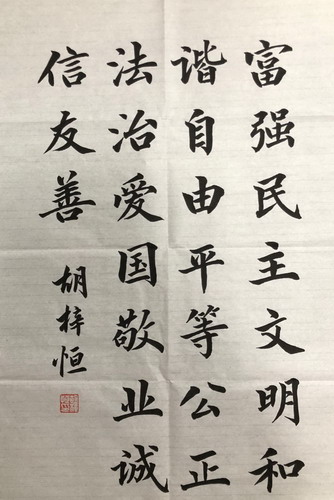 富强民主文明和
谐自由平等公正
法治爱国敬业诚
信友善
胡梓恒